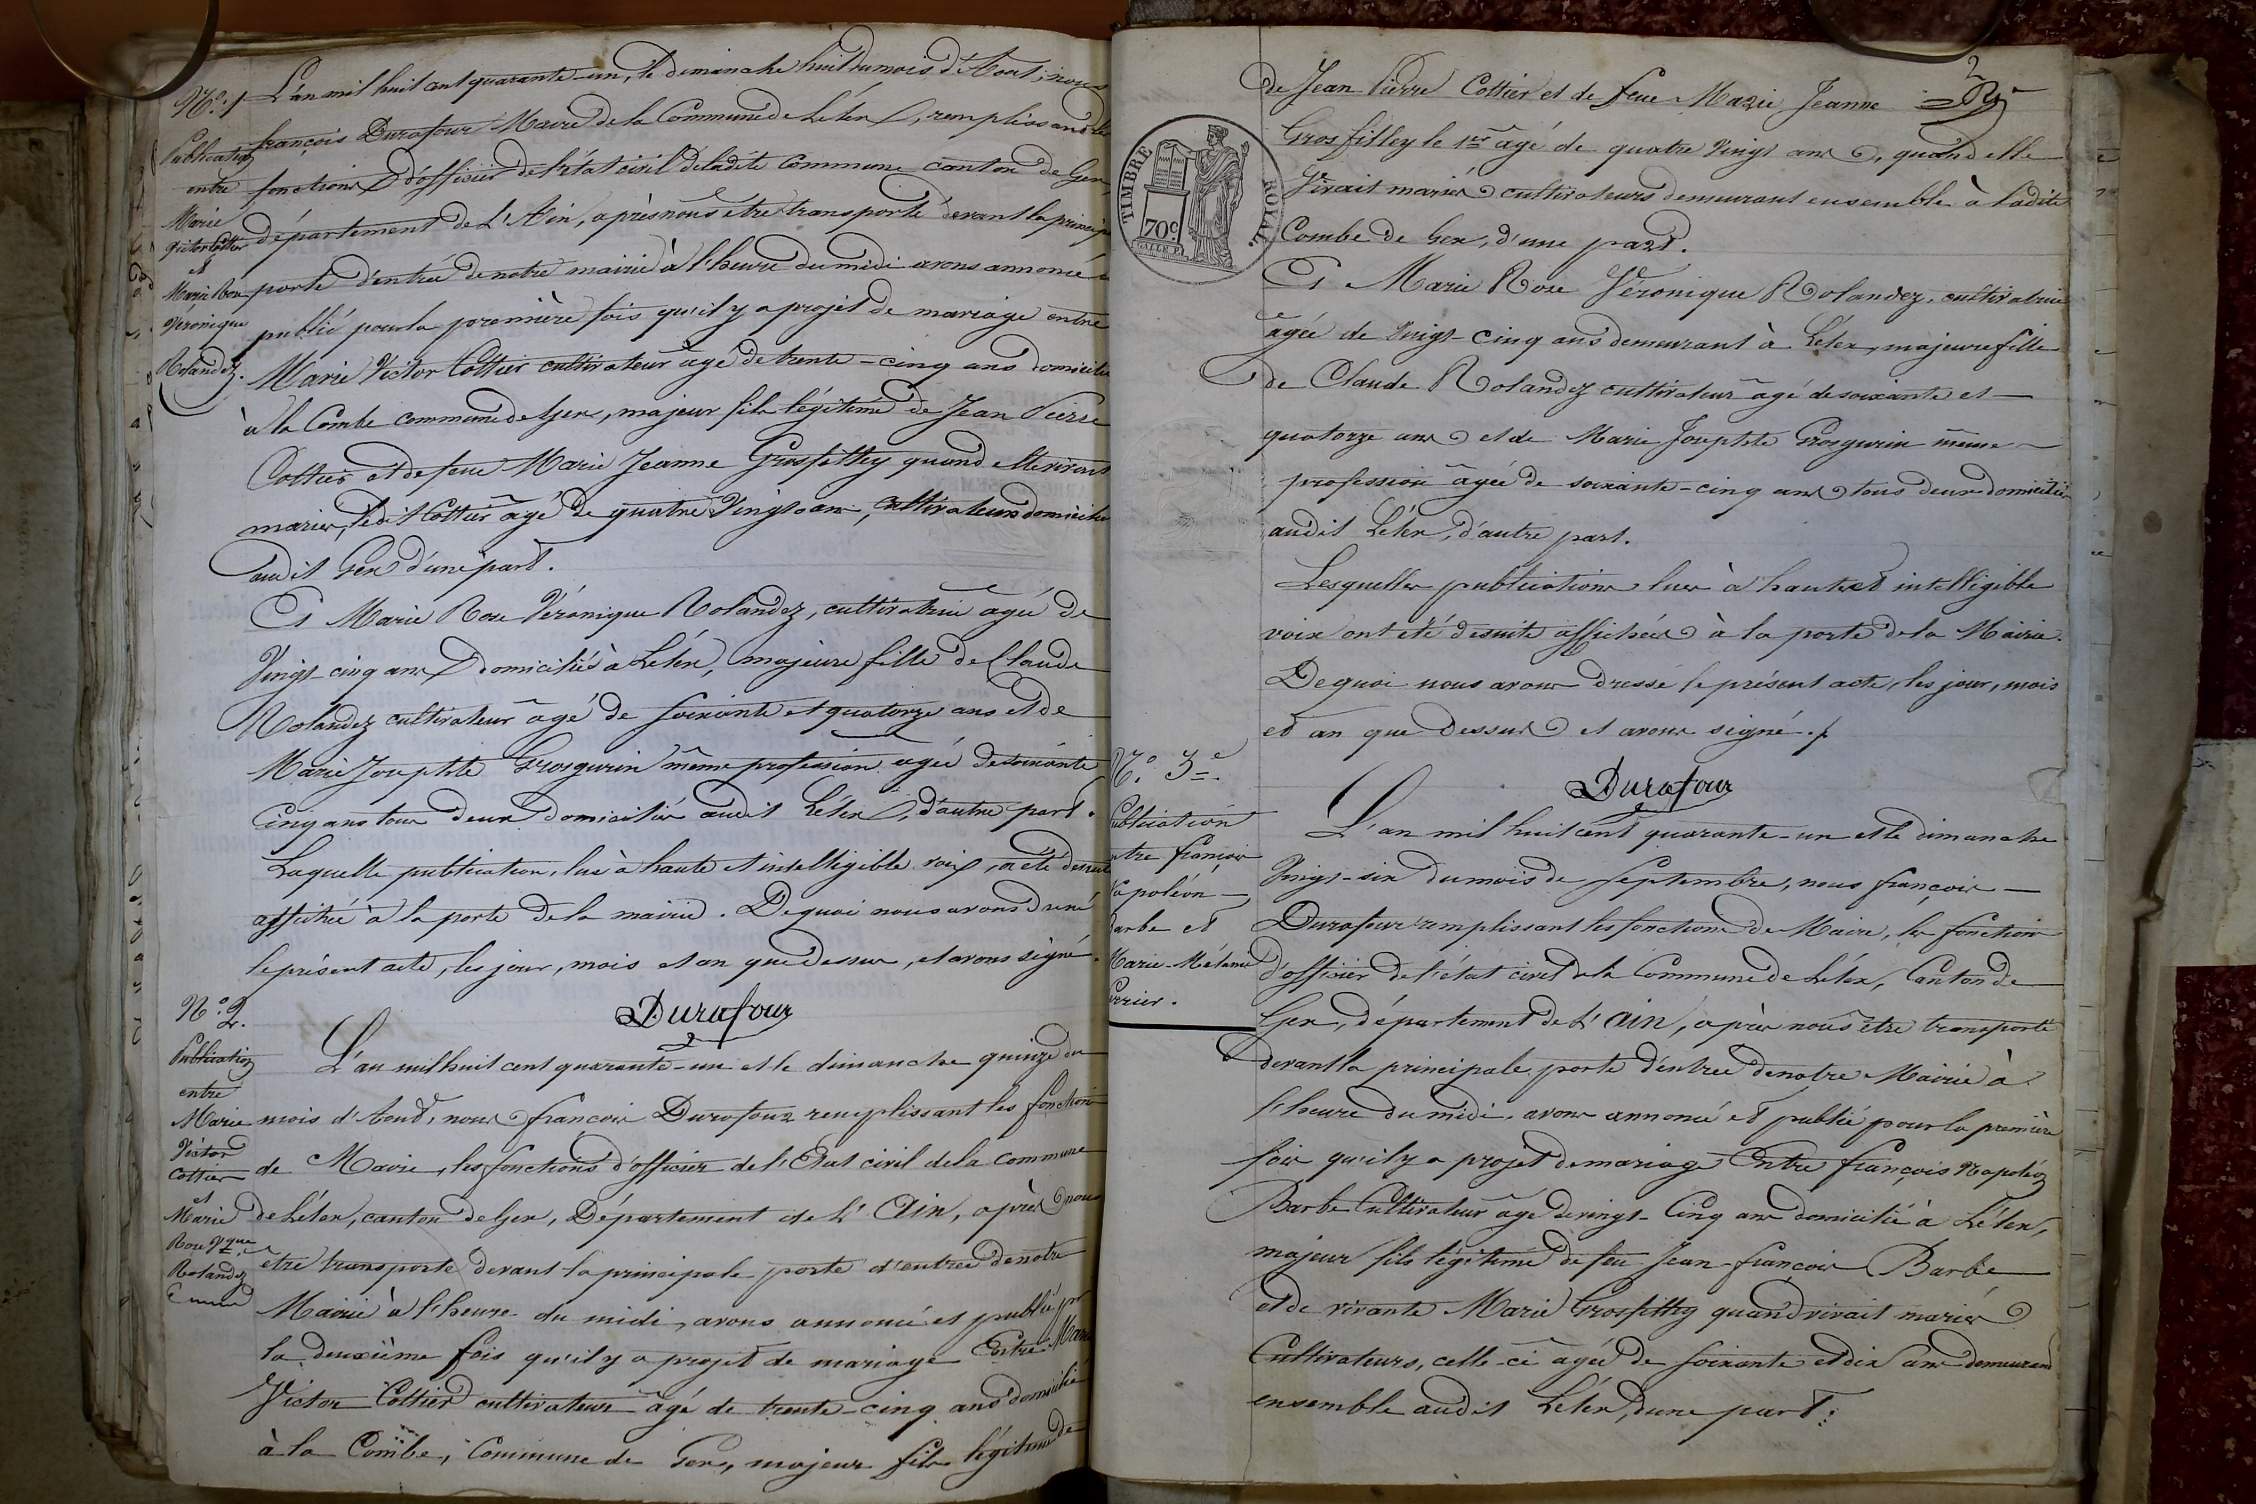 N.º 1
Publication
entre
Marie
Victor Cottier
et
Marie Rose
Véronique
Rolandez.
L'an mil huit cent quarante-un, le dimanche huit du mois d'Aout, nous
françois Durafour Maire de la Commune de Lélex, remplissant les
fonctions d'officier de l'état civil de ladite Commune canton de Gex,
département de L'Ain, après nous être transporté devant la principale
porte d'entrée de notre mairie à l'heure du midi avons annoncé et
publié pour la première fois qu'il y a projet de mariage entre
Marie Victor Cottier cultivateur âgé de trente-cinq ans domicilié
à la Combe commune de Gex, majeur fils légitime de Jean Pierre
Cottier et de feue Marie Jeanne Grosfilley quand elle vivait
mariés, ledit Cottier âgé de quatre Vingts ans, cultivateurs domiciliés
audit Gex d'une part.
Et Marie Rose Véronique Rolandez, cultivatrice agée de
Vingt-cinq ans domiciliés à Lélex, majeure fille de Claude
Rolandez cultivateur âgé de soixante et quatorze ans et de
Marie Josephte Grosgurin même profession agée de soixante
cinq ans tous deux domiciliés audit Lélex, d'autre part.
Laquelle publication, lue à haute et intelligible voix, a été de suite
affichée à la porte de la mairie. De quoi nous avons dressé
le présent acte, les jour, mois et an que dessus, et avons signé.
Durafour
N.º 2.
Publication
entre
Marie
Victor
Cottier
et
Marie
Rose Vque
Rolandez
L'an mil huit cent quarante-un et le dimanche quinze du
mois d'Aout, nous françois Durafour remplissant les fonctions
de Maire, les fonctions d'officier de l'Etat civil de la commune
de Lélex, canton de Gex, Département de L'Ain, après nous
etre transporté devant la principale porte d'entrée de notre
Mairie à l'heure du midi, avons annoncé et publié pr
la deuxième fois qu'il y a projet de mariage Entre Marie
Victor Cottier cultivateur âgé de trente-cinq ans domicilié
à la Combe, Commune de Gex, majeur fils légitime de
2
de Jean Pierre Cottier et de feue Marie Jeanne
Grosfilley le 1er agé de quatre Vingt ans, quand elle
Vivait mariés cultivateurs demeurant ensemble à ladite
Combe de Gex, d'une part.
TIMBRE ROYAL
70c
Et Marie Rose Véronique Rolandez, cultivatrice
âgée de Vingt-cinq ans demeurant à Lélex, majeure fille
de Claude Rolandez cultivateur âgé de soixante et
quatorze ans et de Marie Josephte Grosgurin même
profession âgée de soixante-cinq ans tous deux domiciliés
audit Lélex, d'autre part.
Lesquelles publications lues à haute et intelligible
voix ont été de suite affichées à la porte de la Mairie.
De quoi nous avons dressé le présent acte, les jour, mois
et an que dessus et avons signé.
Durafour
N.º 3e
Publication
entre françois
Napoléon
Barbe et
Marie Mélanie
L'an mil huit cent quarante-un et le dimanche
Vingt-six du mois de septembre, nous françois
Durafour remplissant les fonctions de Maire, les fonctions
d'officier de l'état civil de la Commune de Lélex, Canton de
Gex, département de L'Ain, après nous être transporté
devant la principale porte d'entrée de notre Mairie à
l'heure du midi, avons annoncé et publié pour la première
fois qu'il y a projet de mariage Entre françois Napoléon
Barbe Cultivateur âgé de vingt-Cinq ans domicilié à Lélex,
majeur fils légitime de feu Jean-françois Barbe
et de vivante Marie Grosfilley quand vivait mariés
Cultivateurs, celle-ci âgée de soixante et dix ans demeurant
ensemble audit Lélex, d'une part: